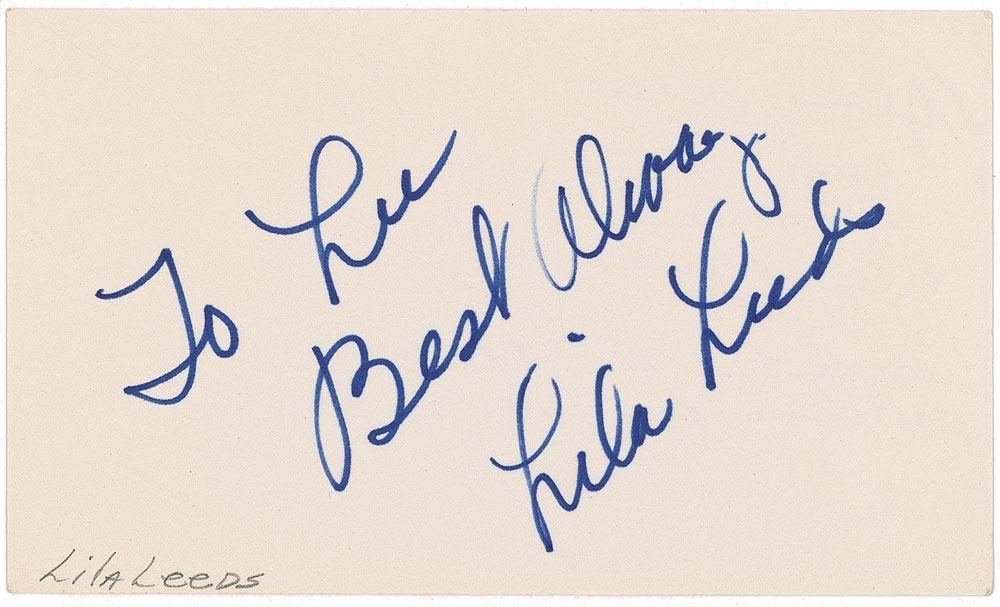 To Lee
Best Always
Lila Leeds
Lila Leeds